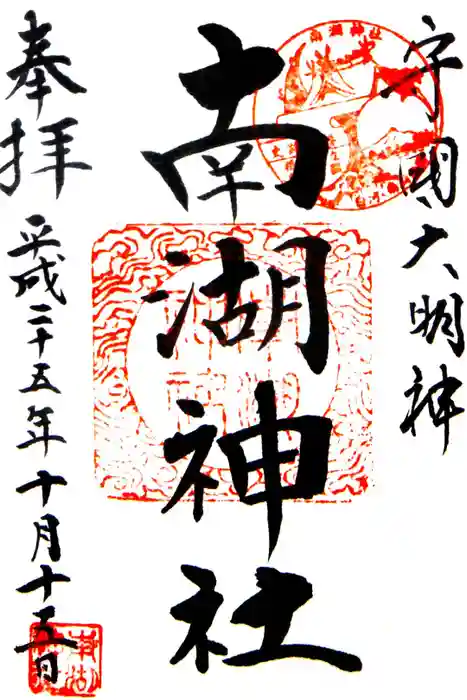 守國大明神
南湖神社
奉拝
平成二十五年十月十五日
南湖神社